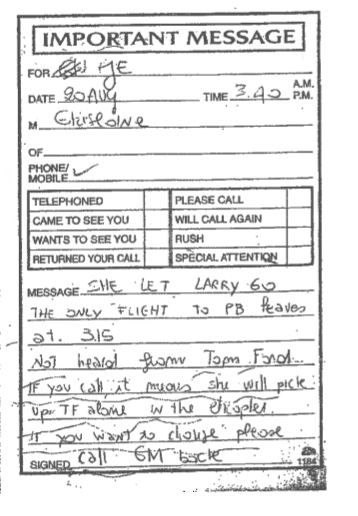 IMPORTANT MESSAGE
FOR JE
DATE 20 Aug TIME 3.40 A.M. P.M.
M Ghislaine
OF
PHONE/
MOBILE ✓
TELEPHONED PLEASE CALL
CAME TO SEE YOU WILL CALL AGAIN
WANTS TO SEE YOU RUSH
RETURNED YOUR CALL SPECIAL ATTENTION
MESSAGE SHE LET LARRY GO
THE ONLY FLIGHT TO PB leaves
at. 3.15
Not heard from Tom Ford...
IF you call it means she will pick
up TF alone in the chopter
IF you want to change please
SIGNED call GM back
1184